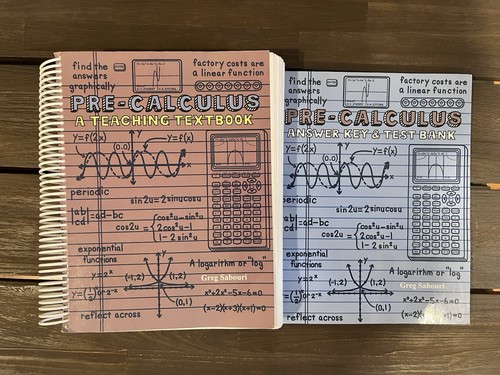 find the
answers
graphically
factory costs are
a linear function
PRE-CALCULUS
A TEACHING TEXTBOOK
y=f(2x)
y
y=f(x)
(0,0)
x
periodic
sin2u=2sinucosu
|ab|
|cd|=ad-bc
cos2u={cos²u-sin²u
2cos²u-1
1-2sin²u
exponential
functions
y=2ˣ
y
A logarithm or "log"
(-1,2)
(1,2)
Greg Sabouri
x
(0,1)
x³+2x²-5x-6=0
reflect across
(x-2)(x+3)(x+1)=0
find the
answers
graphically
factory costs are
a linear function
PRE-CALCULUS
ANSWER KEY & TEST BANK
y=f(2x)
y
y=f(x)
(0,0)
x
periodic
sin2u=2sinucosu
|cd|=ad-bc
cos2u={cos²u-sin²u
2cos²u-1
1-2sin²u
exponential
functions
y=2ˣ
y
A logarithm or "log"
(-1,2)
(1,2)
Greg Sabouri
x
(0,1)
x³+2x²-5x-6=0
reflect across